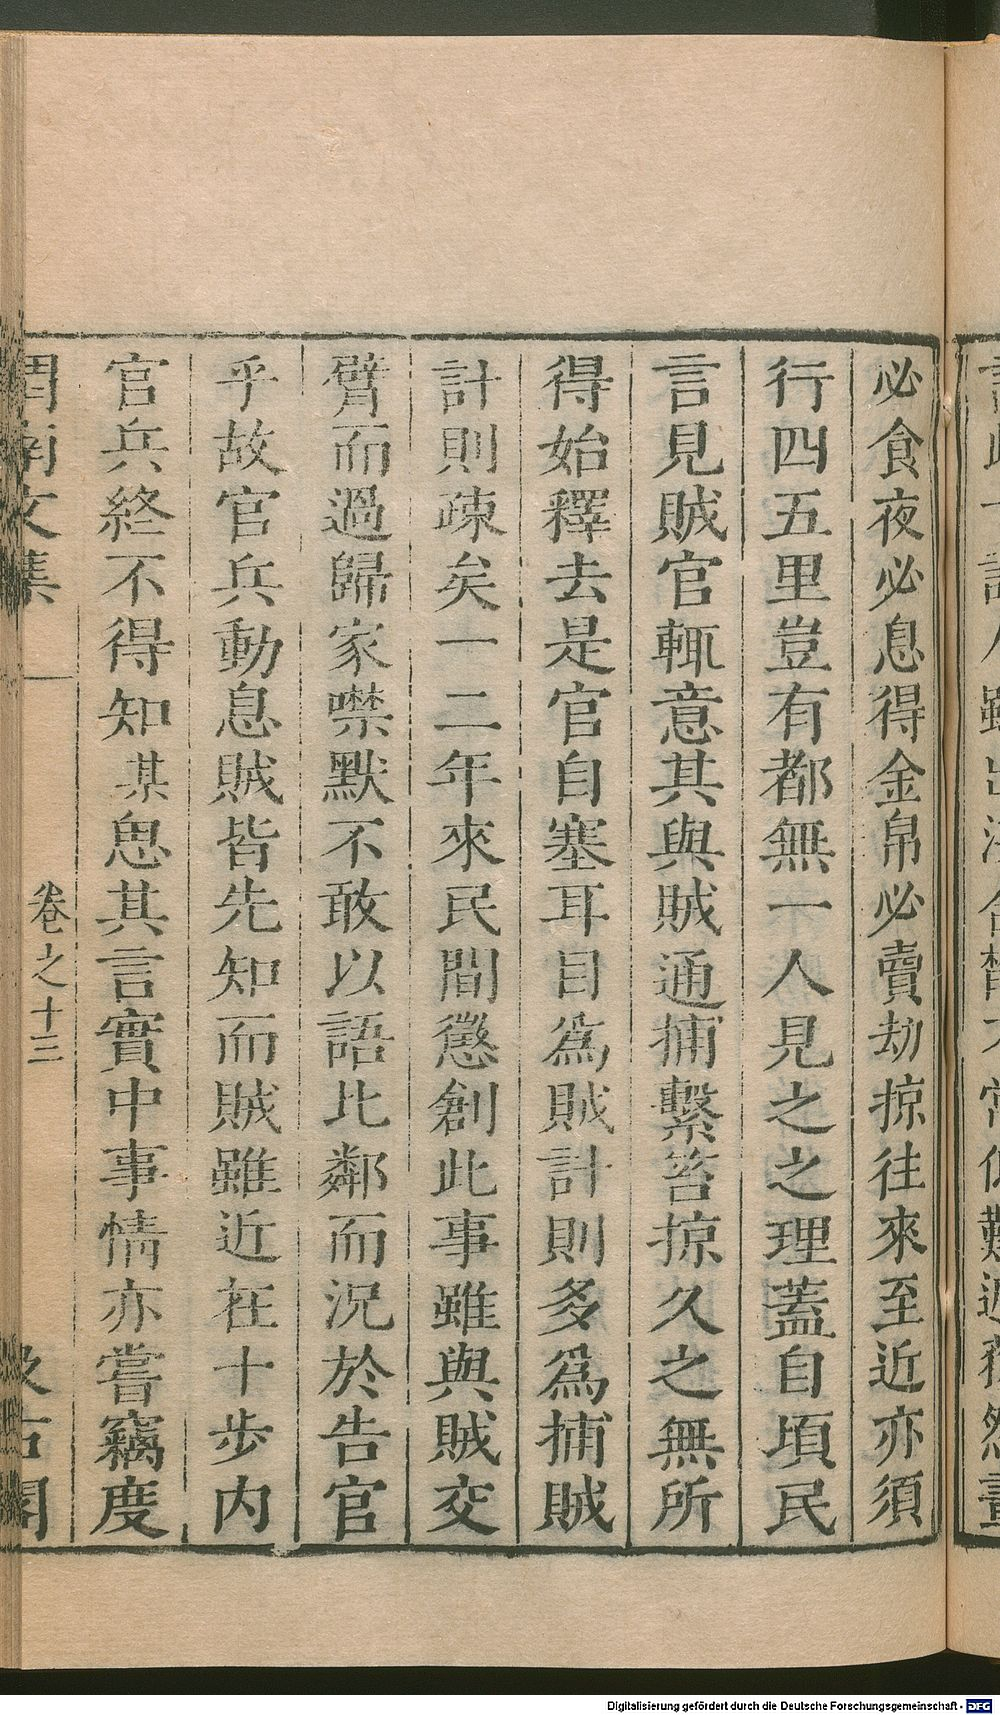 必食夜必息得金帛必賣劫掠往來至近亦須
行四五里豈有都無一人見之之理蓋自頃民
言見賊官輒意其與賊通捕繫笞掠久之無所
得始釋去是官自塞耳目爲賊計則多爲捕賊
計則疎矣一二年來民間懲創此事雖與賊交
臂而過歸家噤默不敢以語比鄰而況於告官
乎故官兵動息賊皆先知而賊雖近在十步内
官兵終不得知某思其言實中事情亦嘗竊度
渭南文集 卷之十三 汲古閣
Digitalisierung gefördert durch die Deutsche Forschungsgemeinschaft - DFG